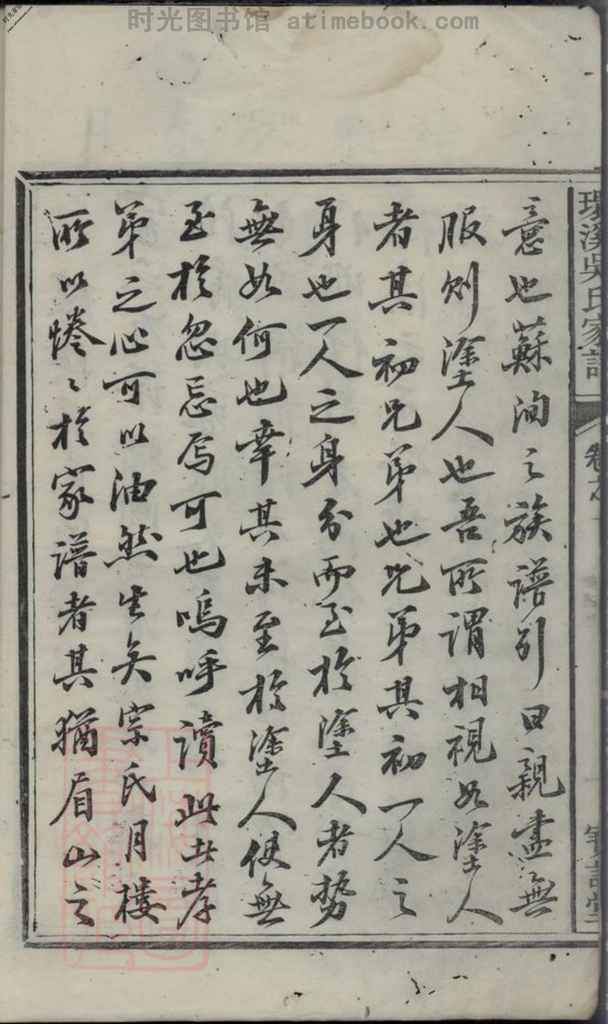 时光图书馆 atimebook.com
環溪吳氏家譜
卷之
意也蘇洵之族譜引曰親盡無
服則塗人也吾所謂相視如塗人
者其初兄弟也兄弟其初一人之
身也一人之身分而至於塗人者勢
無如何也幸其未至於塗人使無
至於忽忘焉可也嗚呼讀此者孝
弟之心可以油然生矣宗氏月樓
所以惓〻於家譜者其猶眉山之